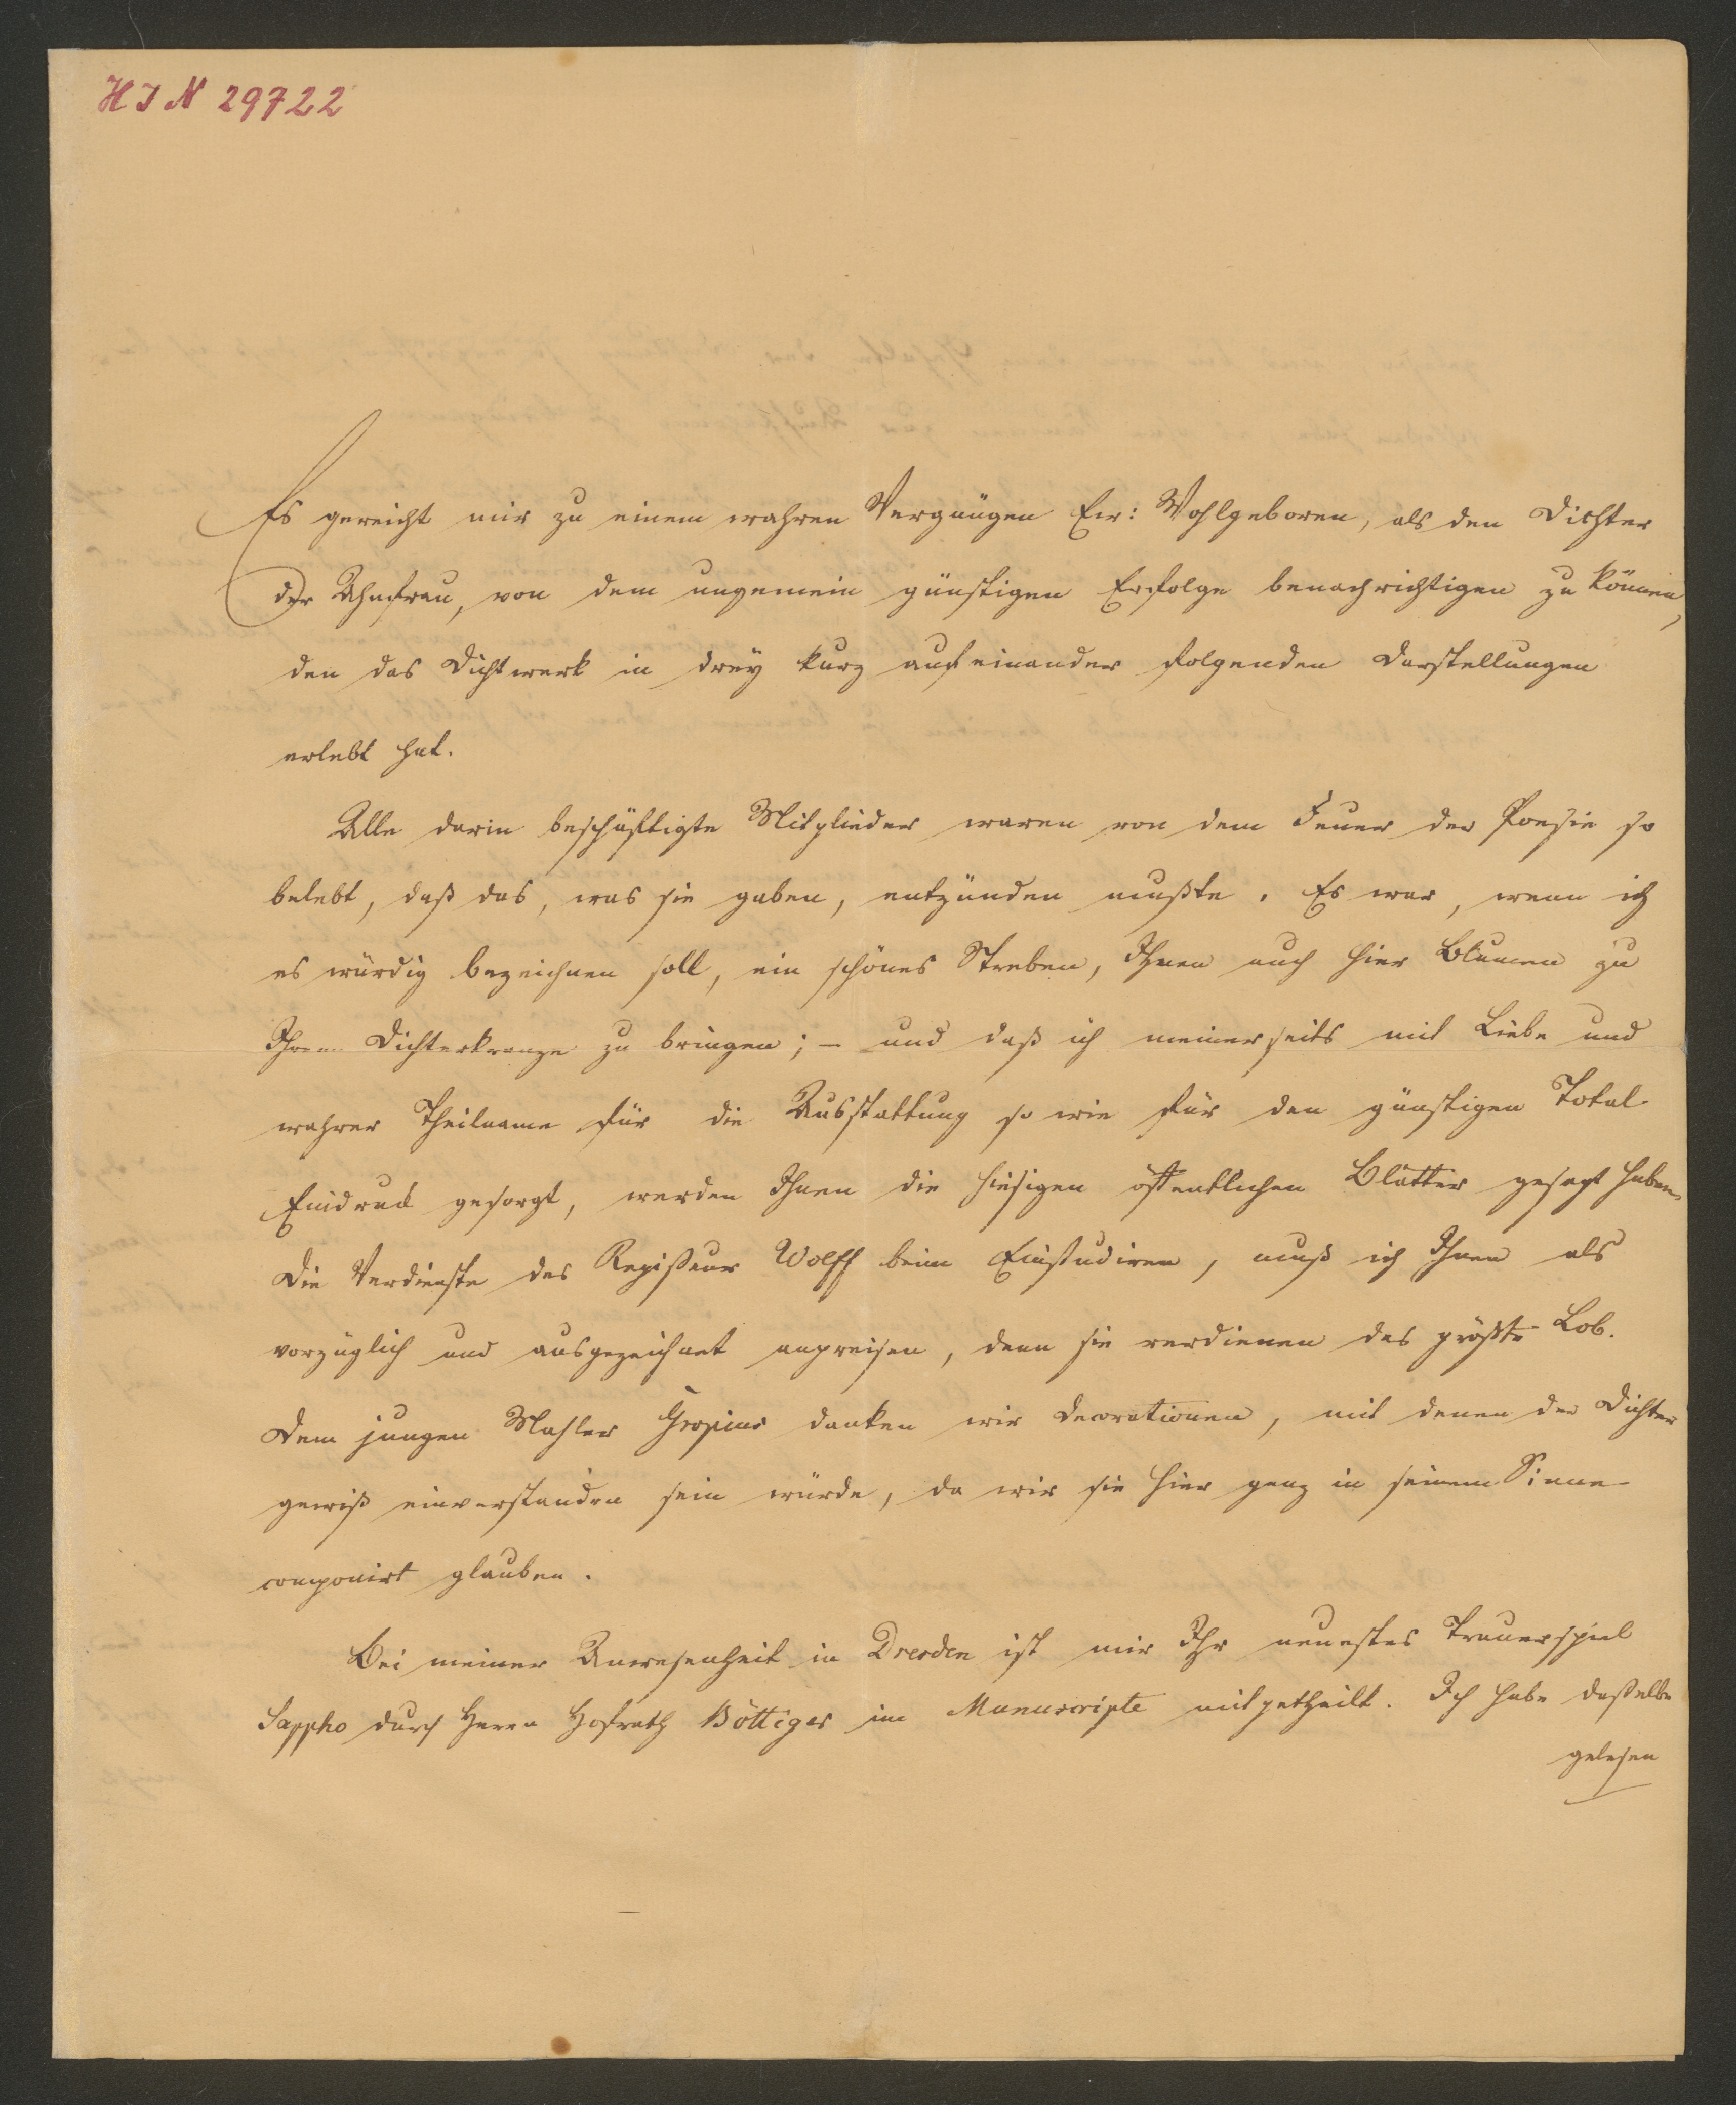 H I N 29722
Es gereicht mir zu einem wahren Vergnügen Ew: Wohlgeboren, als den Dichter
der Ahnfrau, von dem ungemein günstigen Erfolge benachrichtigen zu können,
den das Dichtwerk in drey kurz aufeinander folgenden Darstellungen
erlebt hat.
Alle darin beschäftigte Mitglieder waren von dem Feuer der Poesie so
belebt, daß das, was sie gaben, entzünden mußte. Es war, wenn ich
es würdig bezeichnen soll, ein schönes Streben, Ihnen auch hier Blumen zu
Ihrem Dichterkranze zu bringen; – und daß ich meinerseits mit Liebe und
wahrer Theilname für die Ausstattung so wie für den günstigen Total-
Eindruck gesorgt, werden Ihnen die hiesigen öffentlichen Blätter gesagt haben.
Die Verdienste des Regißeur Wolff beim Einstudiren, muß ich Ihnen als
vorzüglich und ausgezeichnet anpreisen, denn sie verdienen das größte Lob.
Dem jungen Mahler Gropius danken wir Decorationen, mit denen der Dichter
gewiß einverstanden sein würde, da wir sie hier ganz in seinem Sinne
componirt glauben.
Bei meiner Anwesenheit in Dresden ist mir Ihr neuestes Trauerspiel
Sappho durch Herrn Hofrath Böttiger im Manuscripte mitgetheilt. Ich habe daßelbe
gelesen